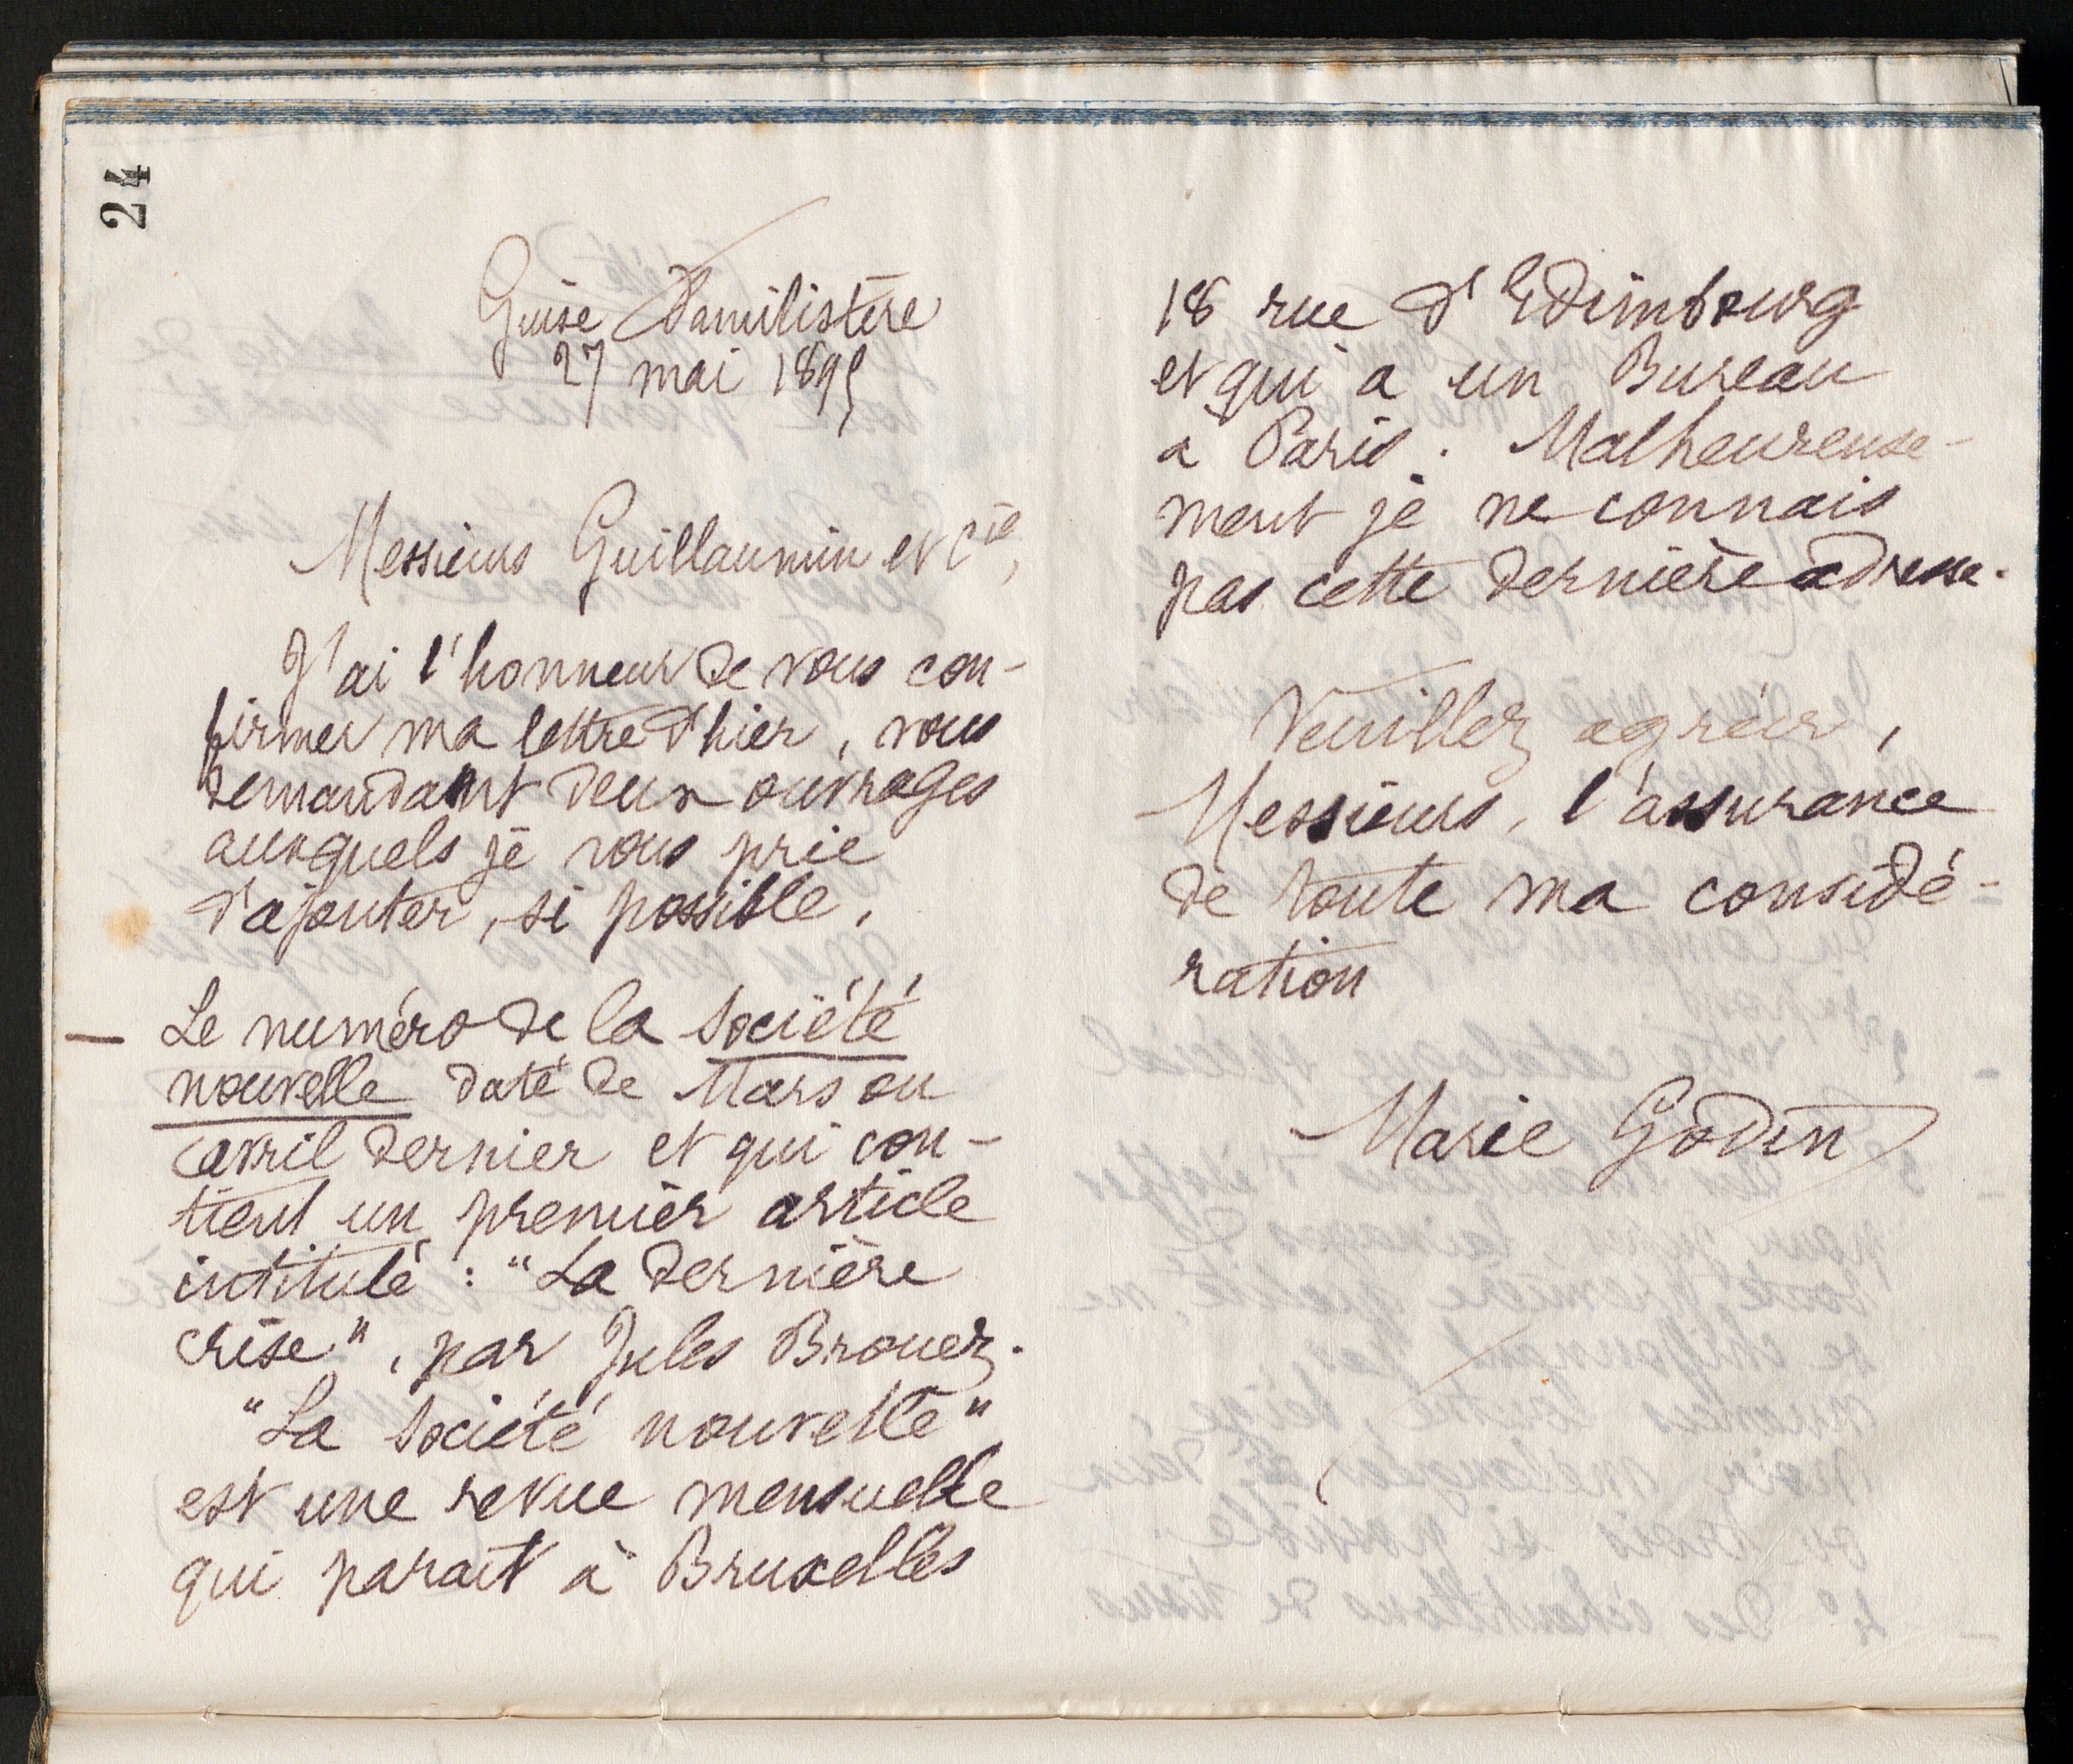 24
Guise Familistère
27 mai 1895
Messieurs Guillaumin et Cie,
J'ai l'honneur de vous con-
firmer ma lettre d'hier, vous
demandant deux ouvrages
auxquels je vous prie
d'ajouter, si possible,
— Le numéro de la Société
nouvelle daté de Mars ou
avril dernier et qui con-
tient un premier article
intitulé : "La dernière
crise", par Jules Brouez.
"La Société nouvelle"
est une revue mensuelle
qui parait à Bruxelles
18 rue d'Edimbourg
et qui a un Bureau
à Paris. Malheureuse-
ment je ne connais
pas cette dernière adresse.
Veuillez agréer,
Messieurs, l'assurance
de toute ma considé-
ration
Marie Godin